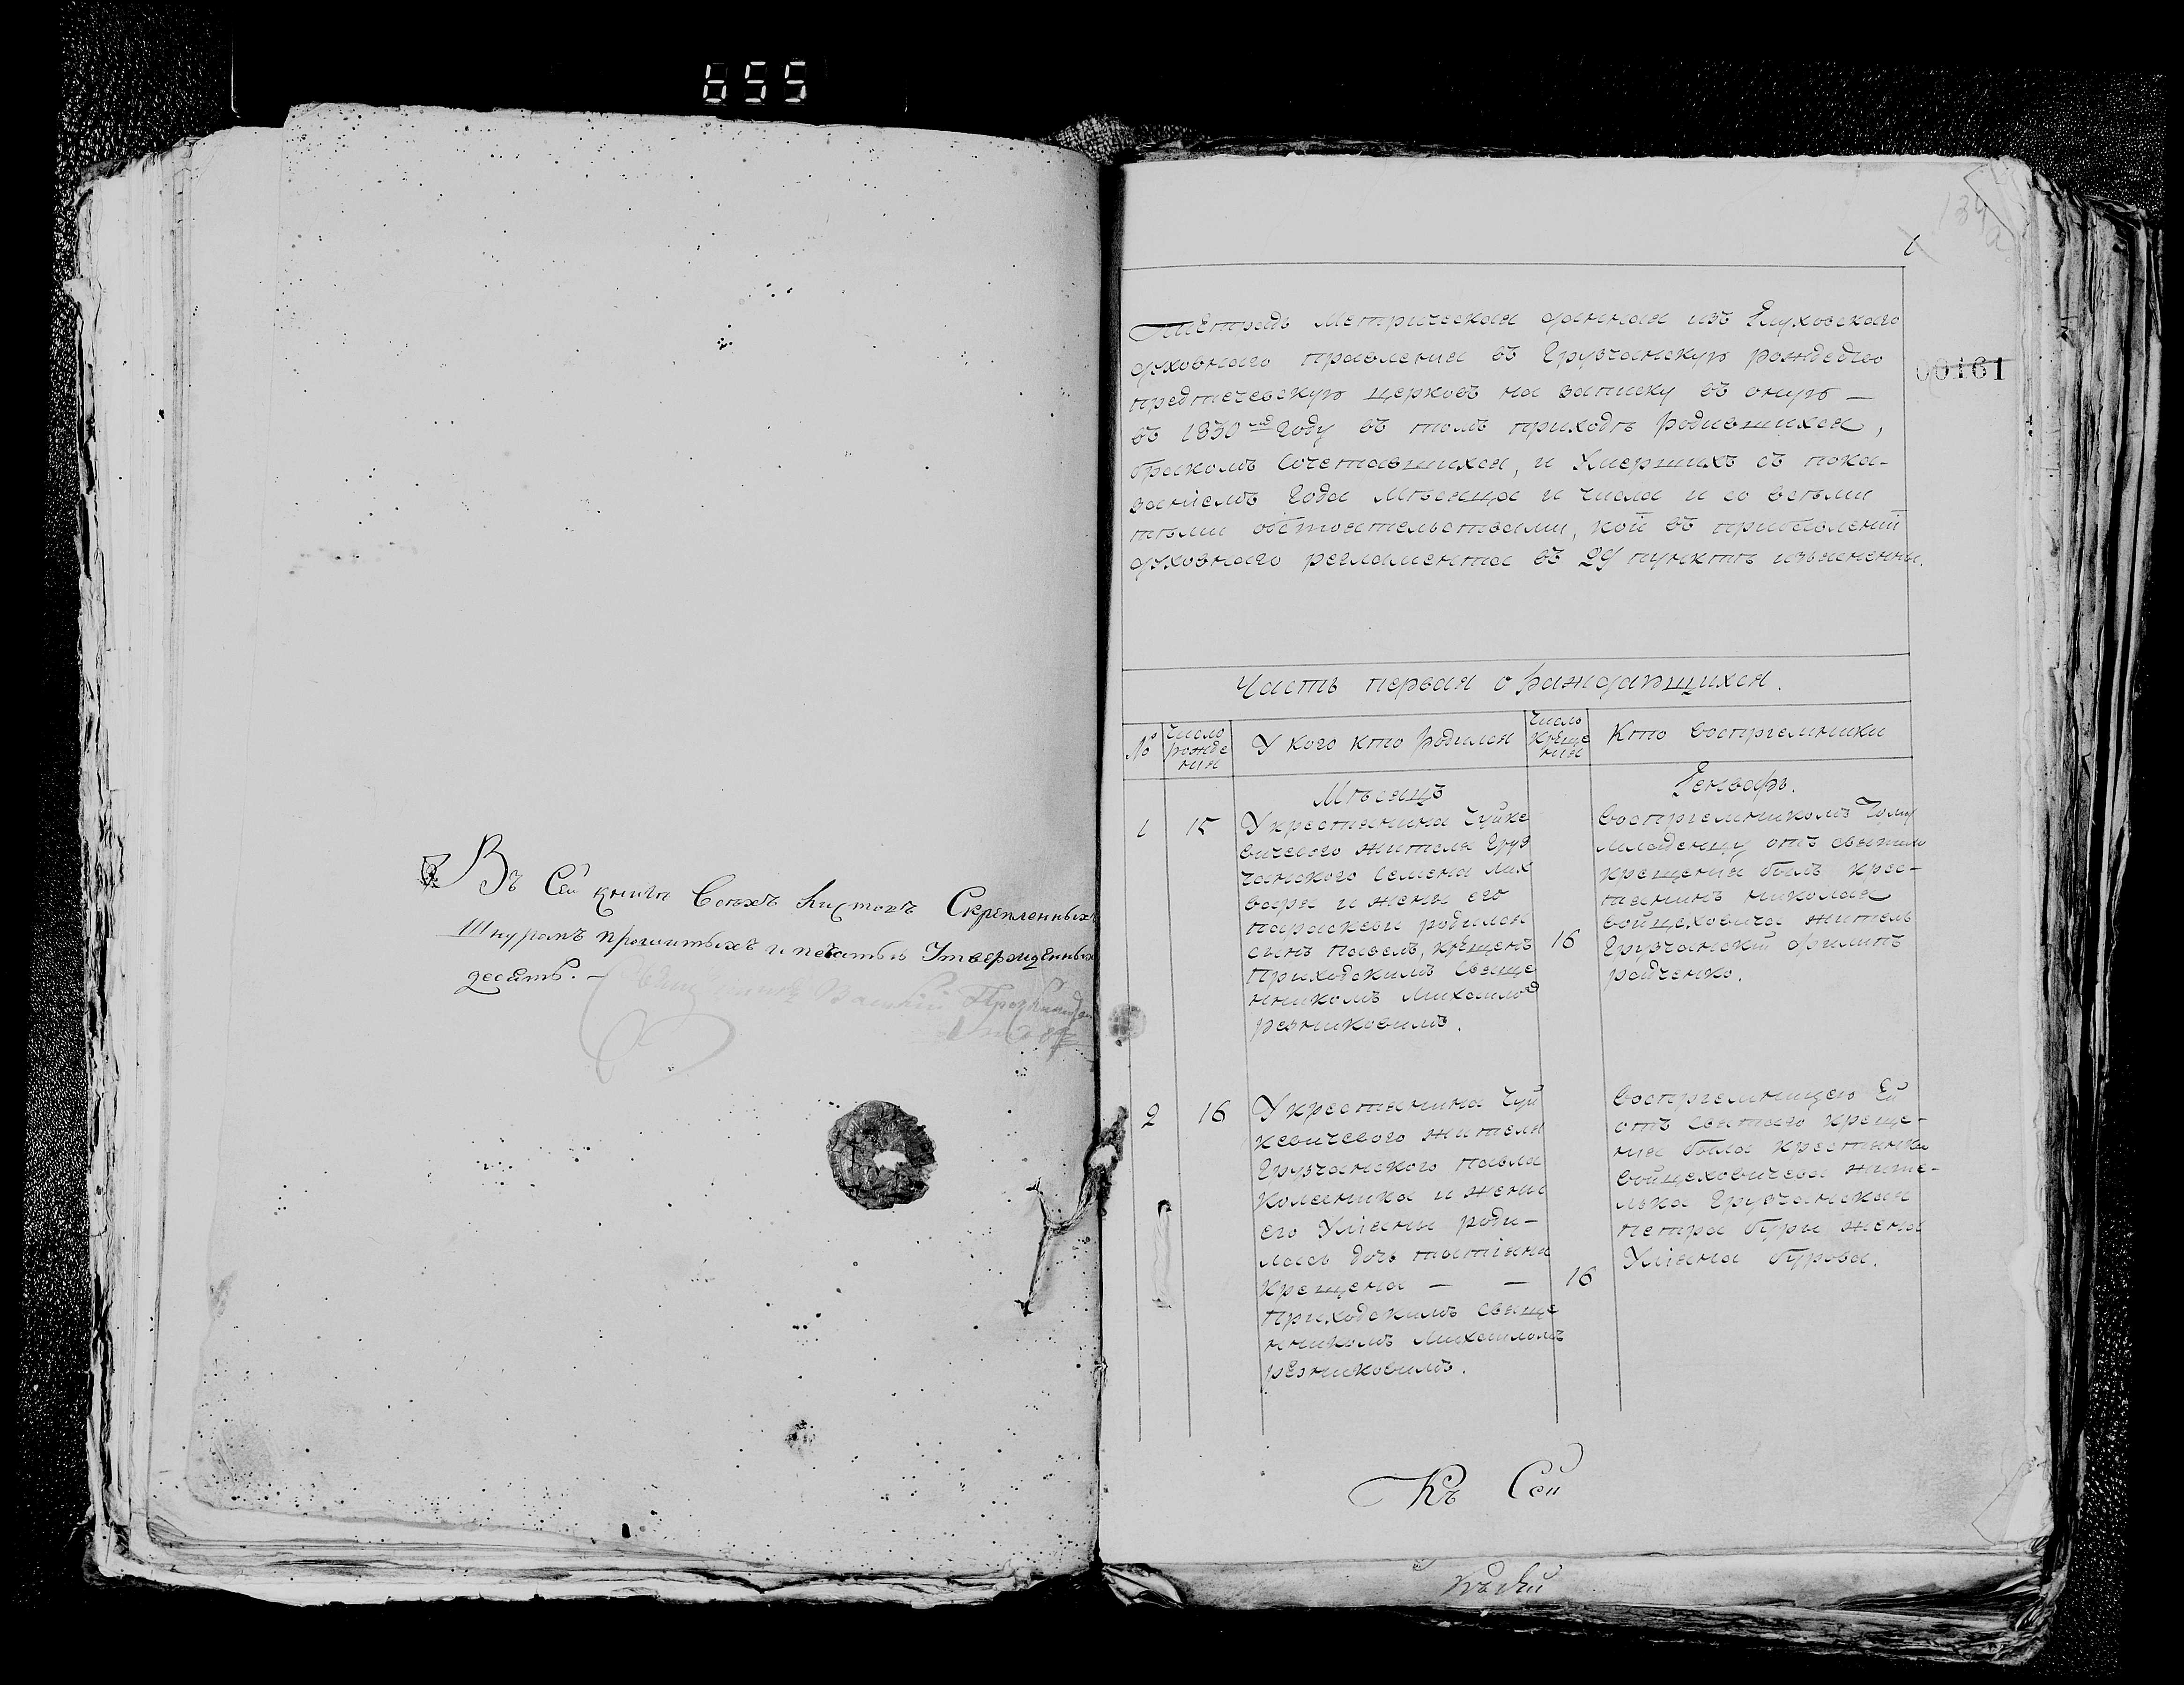 655
Въ Сей книги Всѣхъ листовъ Скрепленныхъ
Шнуромъ прошитыхъ и печатью Утвержденныхъ
десять. —
1
00161
Тетрадь метрическая данная изъ Глуховскаго
духовнаго правления въ Грузчанскую рождество
предтечевскую церковъ на записку въ оную —
въ 1830мъ году въ томъ приходѣ родившихся,
бракомъ сочетавшихся, и Умершихъ съ пока-
заніемъ года мѣсяца и числа и со всѣми
тѣми обстоятельствами, кои въ прибавлении
духовнаго регламента въ 29 пунктѣ изъяснены.
Часть первая о раждающихся.
№ Число рожде ния У кого кто родился Число креще ния Кто восприемники
Мѣсяцъ Генварь.
1 15 У крестянина Чуйке
вичевого жителя Груз
чанского Семена Лих
варя и жены его
параскеви родился
сынъ павелъ, крещенъ 16
Приходскимъ свяще
нникомъ михаиломъ
резниковимъ.
восприемникомъ Тому
младенцу отъ святаго
крещения былъ крес-
тянинъ николая
войцеховича житель
Грузчанский филипъ
радченко.
2 16 У крестянина Чуй
кевичевого жителя
Грузчанского павла
колесника и жены
его Улияны роди-
лась дочь татіяна
крещена — — 16
Приходскимъ свяще
нникомъ михаиломъ
резниковимъ.
восприемницею Ей
отъ святаго креще-
ния была крестянка
войцеховичева жите-
лька Грузчанская
петра буры жена
Улияна бурова.
Къ Сей